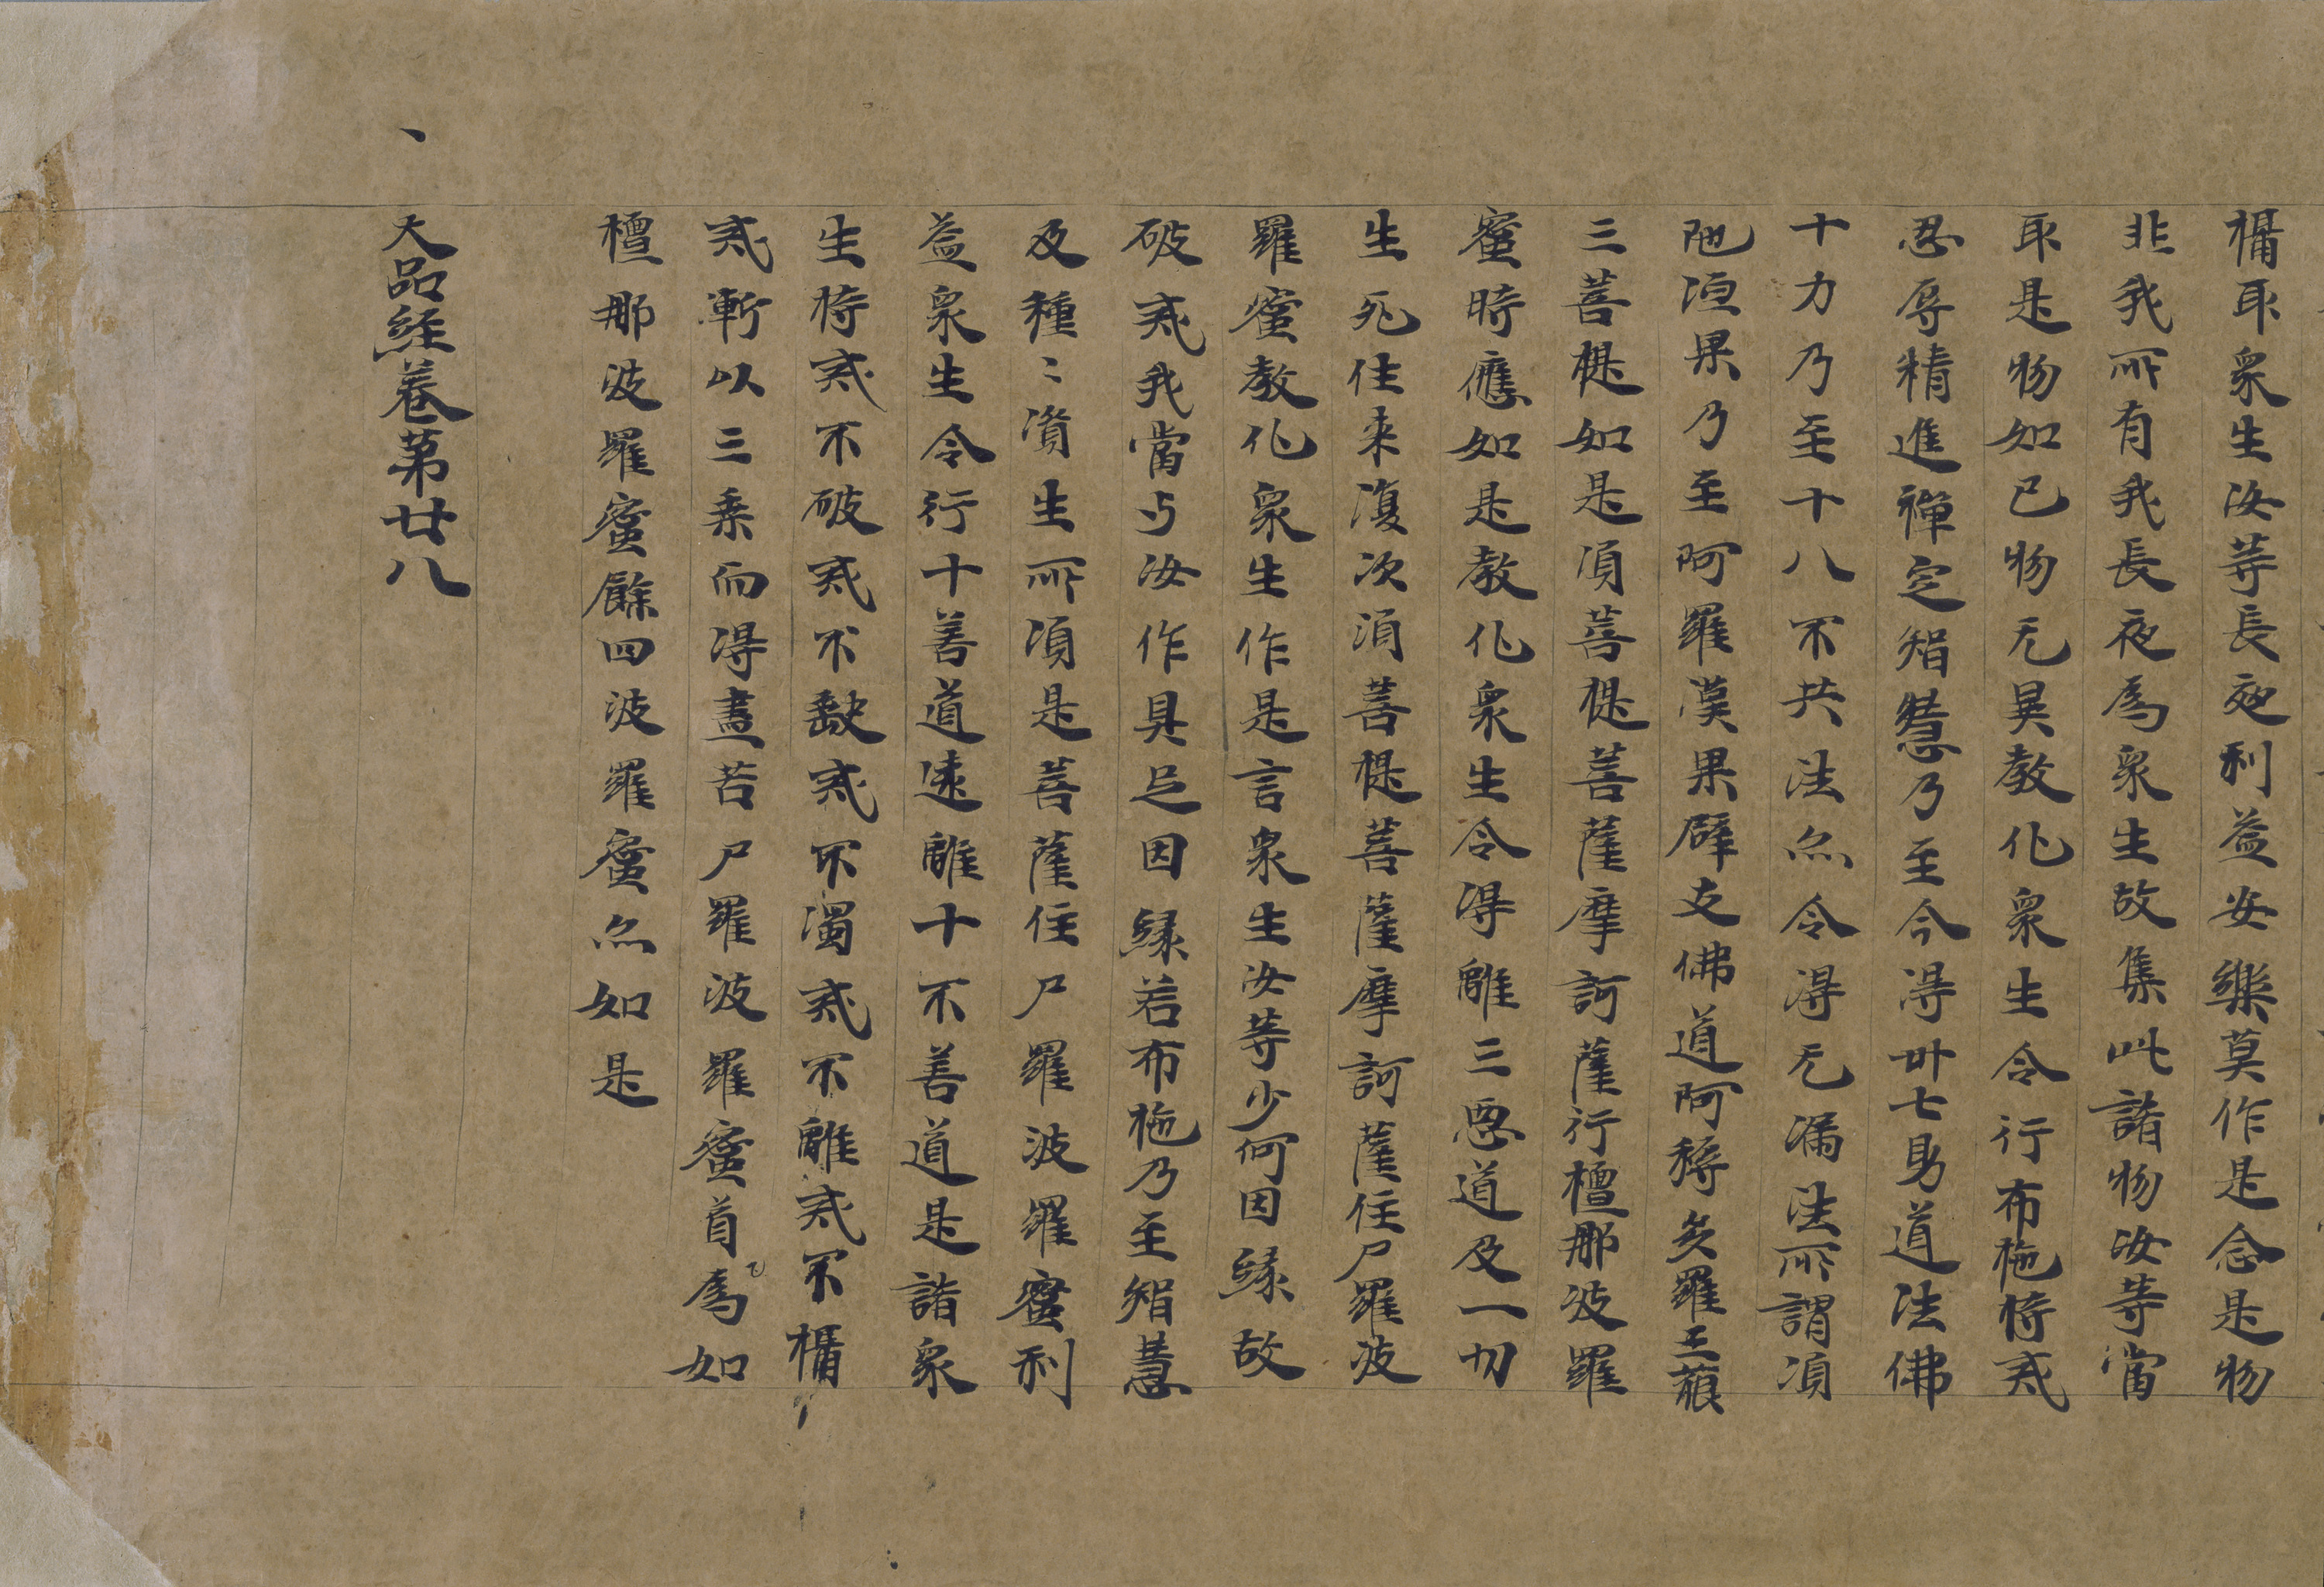 攝取衆生汝等長夜利益安樂莫作是念是物
非我所有我長夜為衆生故集此諸物汝等當
取是物如己物无異教化衆生令行布施持戒
忍辱精進禪定智慧乃至令得卅七助道法佛
十力乃至十八不共法亦令得无漏法所謂須
陀洹果乃至阿羅漢果辟支佛道阿耨多羅三藐
三菩提如是須菩提菩薩摩訶薩行檀那波羅
蜜時應如是教化衆生令得離三惡道及一切
生死往来復次須菩提菩薩摩訶薩住尸羅波
羅蜜教化衆生作是言衆生汝等少何因緣故
破戒我當与汝作具足因緣若布施乃至智慧
及種〻資生所須是菩薩住尸羅波羅蜜利
益衆生令行十善道遠離十不善道是諸衆
生持戒不破戒不缺戒不濁戒不離戒不攝
戒漸以三乘而得盡苦尸羅波羅蜜首為如
檀那波羅蜜餘四波羅蜜亦如是
大品經卷第廿八